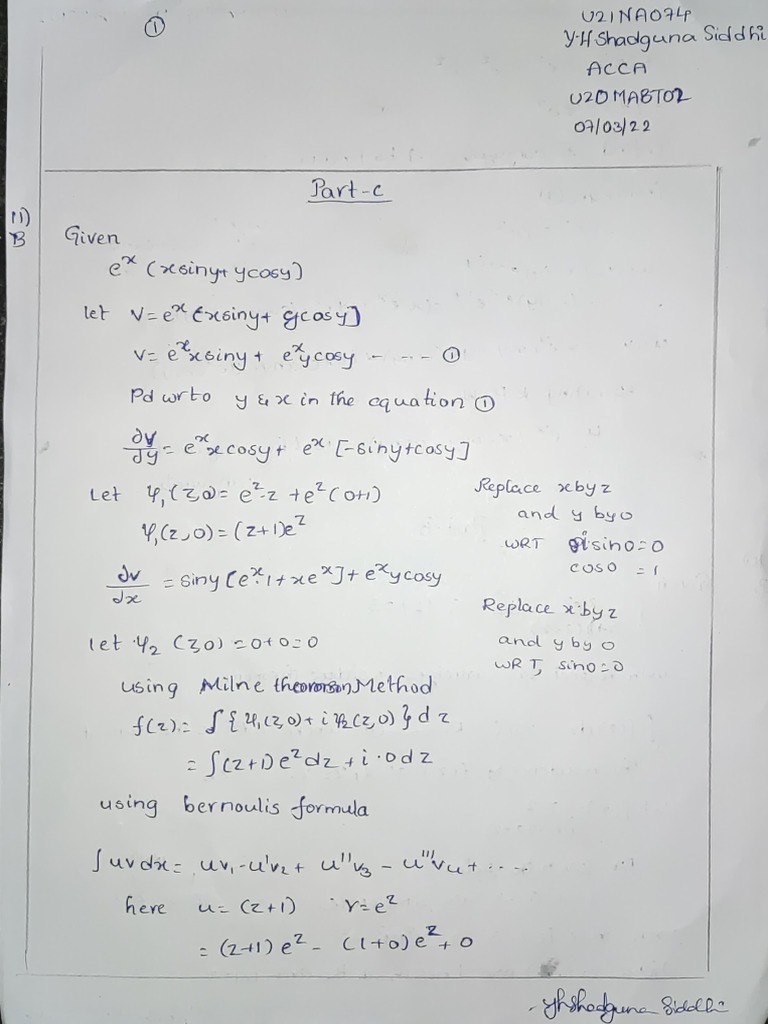 ①
U21NA074
Y.H Shadguna Siddhi
ACCA
U20MABT02
07/03/22
Part-c
11)
B
Given
e^x (xsiny+ ycosy)
let V = e^x [xsiny+ ycosy]
V = e^x xsiny + e^x ycosy - --- ①
Pd wrto y & x in the equation ①
∂V/∂y = e^x x cosy + e^x [-siny+cosy]
Let Ψ₁(z,0) = e^z.z + e^z (0+1)
Replace x by z
and y by 0
Ψ₁(z,0) = (z+1)e^z
WRT sin0=0
cos0 = 1
∂v/∂x = siny [e^x.1+xe^x]+ e^x ycosy
Replace x by z
let Ψ₂ (z,0) = 0+0=0
and y by 0
WRT, sin0=0
using Milne Method
f(z) = ∫{Ψ₁(z,0)+ iΨ₂(z,0)}dz
= ∫(z+1)e^z dz + i.0dz
using bernoulis formula
∫uvdx = uv₁-u'v₂+ u''v₃ - u'''v₄+ ....
here u= (z+1) v=e^z
= (z+1) e^z - (1+0)e^z + 0
- yhshadguna Siddhi